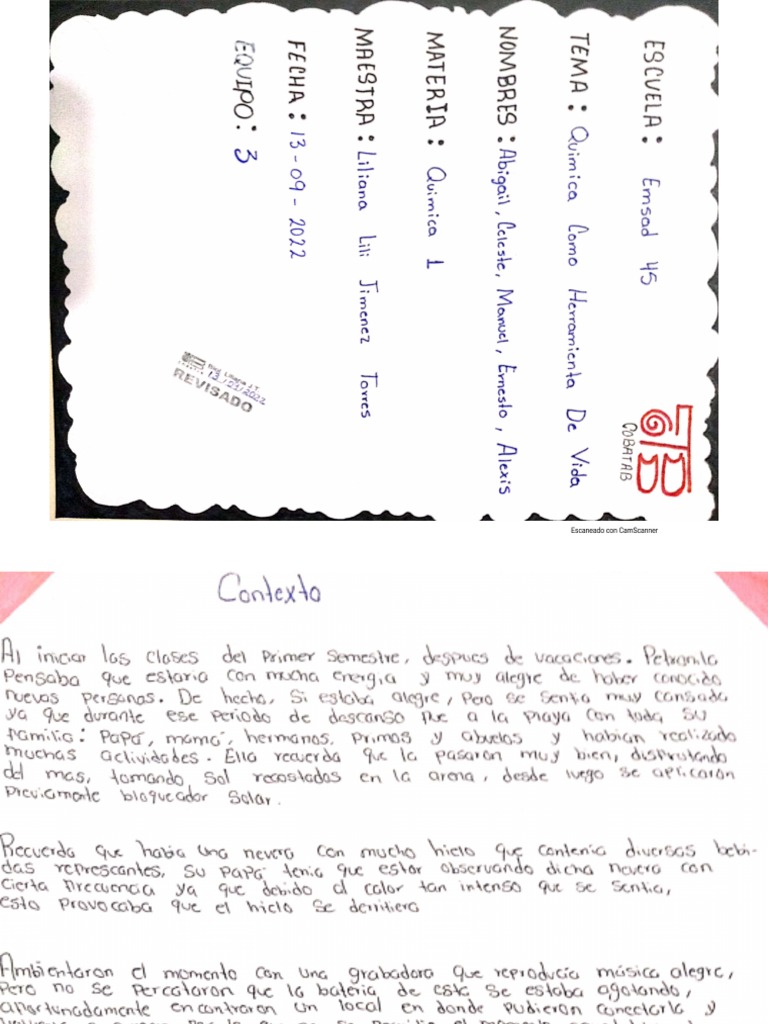 ESCUELA: Emsad 45
COBATAB
TEMA: Quimica Como Herramienta De Vida
NOMBRES: Abigail, Celeste, Manuel, Ernesto, Alexis
MATERIA: Quimica 1
MAESTRA: Liliana Lili Jimenez Torres
FECHA: 13-09-2022
EQUIPO: 3
REVISADO
Escaneado con CamScanner
Contexto
Al iniciar las clases del Primer Semestre, despues de vacaciones. Petronila
Pensaba que estaria con mucha energia y muy alegre de haber conocido
nuevas personas. De hecho, Si estaba alegre, Pero se sentia muy cansada
ya que durante ese Periodo de descanso fue a la Playa con toda su
familia: Papá, mamá, hermanos, Primos y abuelos y habian realizado
muchas actividades. Ella recuerda que la pasaron muy bien, disfrutando
del mas, tomando Sol recostados en la arena, desde luego se aplicaron
Previamente bloqueador Solar.
Recuerda que habia una nevera con mucho hielo que contenia diversas bebi-
das refrescantes, su PaPá tenia que estar observando dicha nevera con
cierta frecuencia ya que debido al calor tan intenso que se sentia,
esto Provocaba que el hielo se derritiera
Ambientaron el momento con una grabadora que reproducia música alegre,
Pero no se Percataron que la bateria de esta se estaba agotando,
afortunadamente encontraron un local en donde Pudieron conectarla y